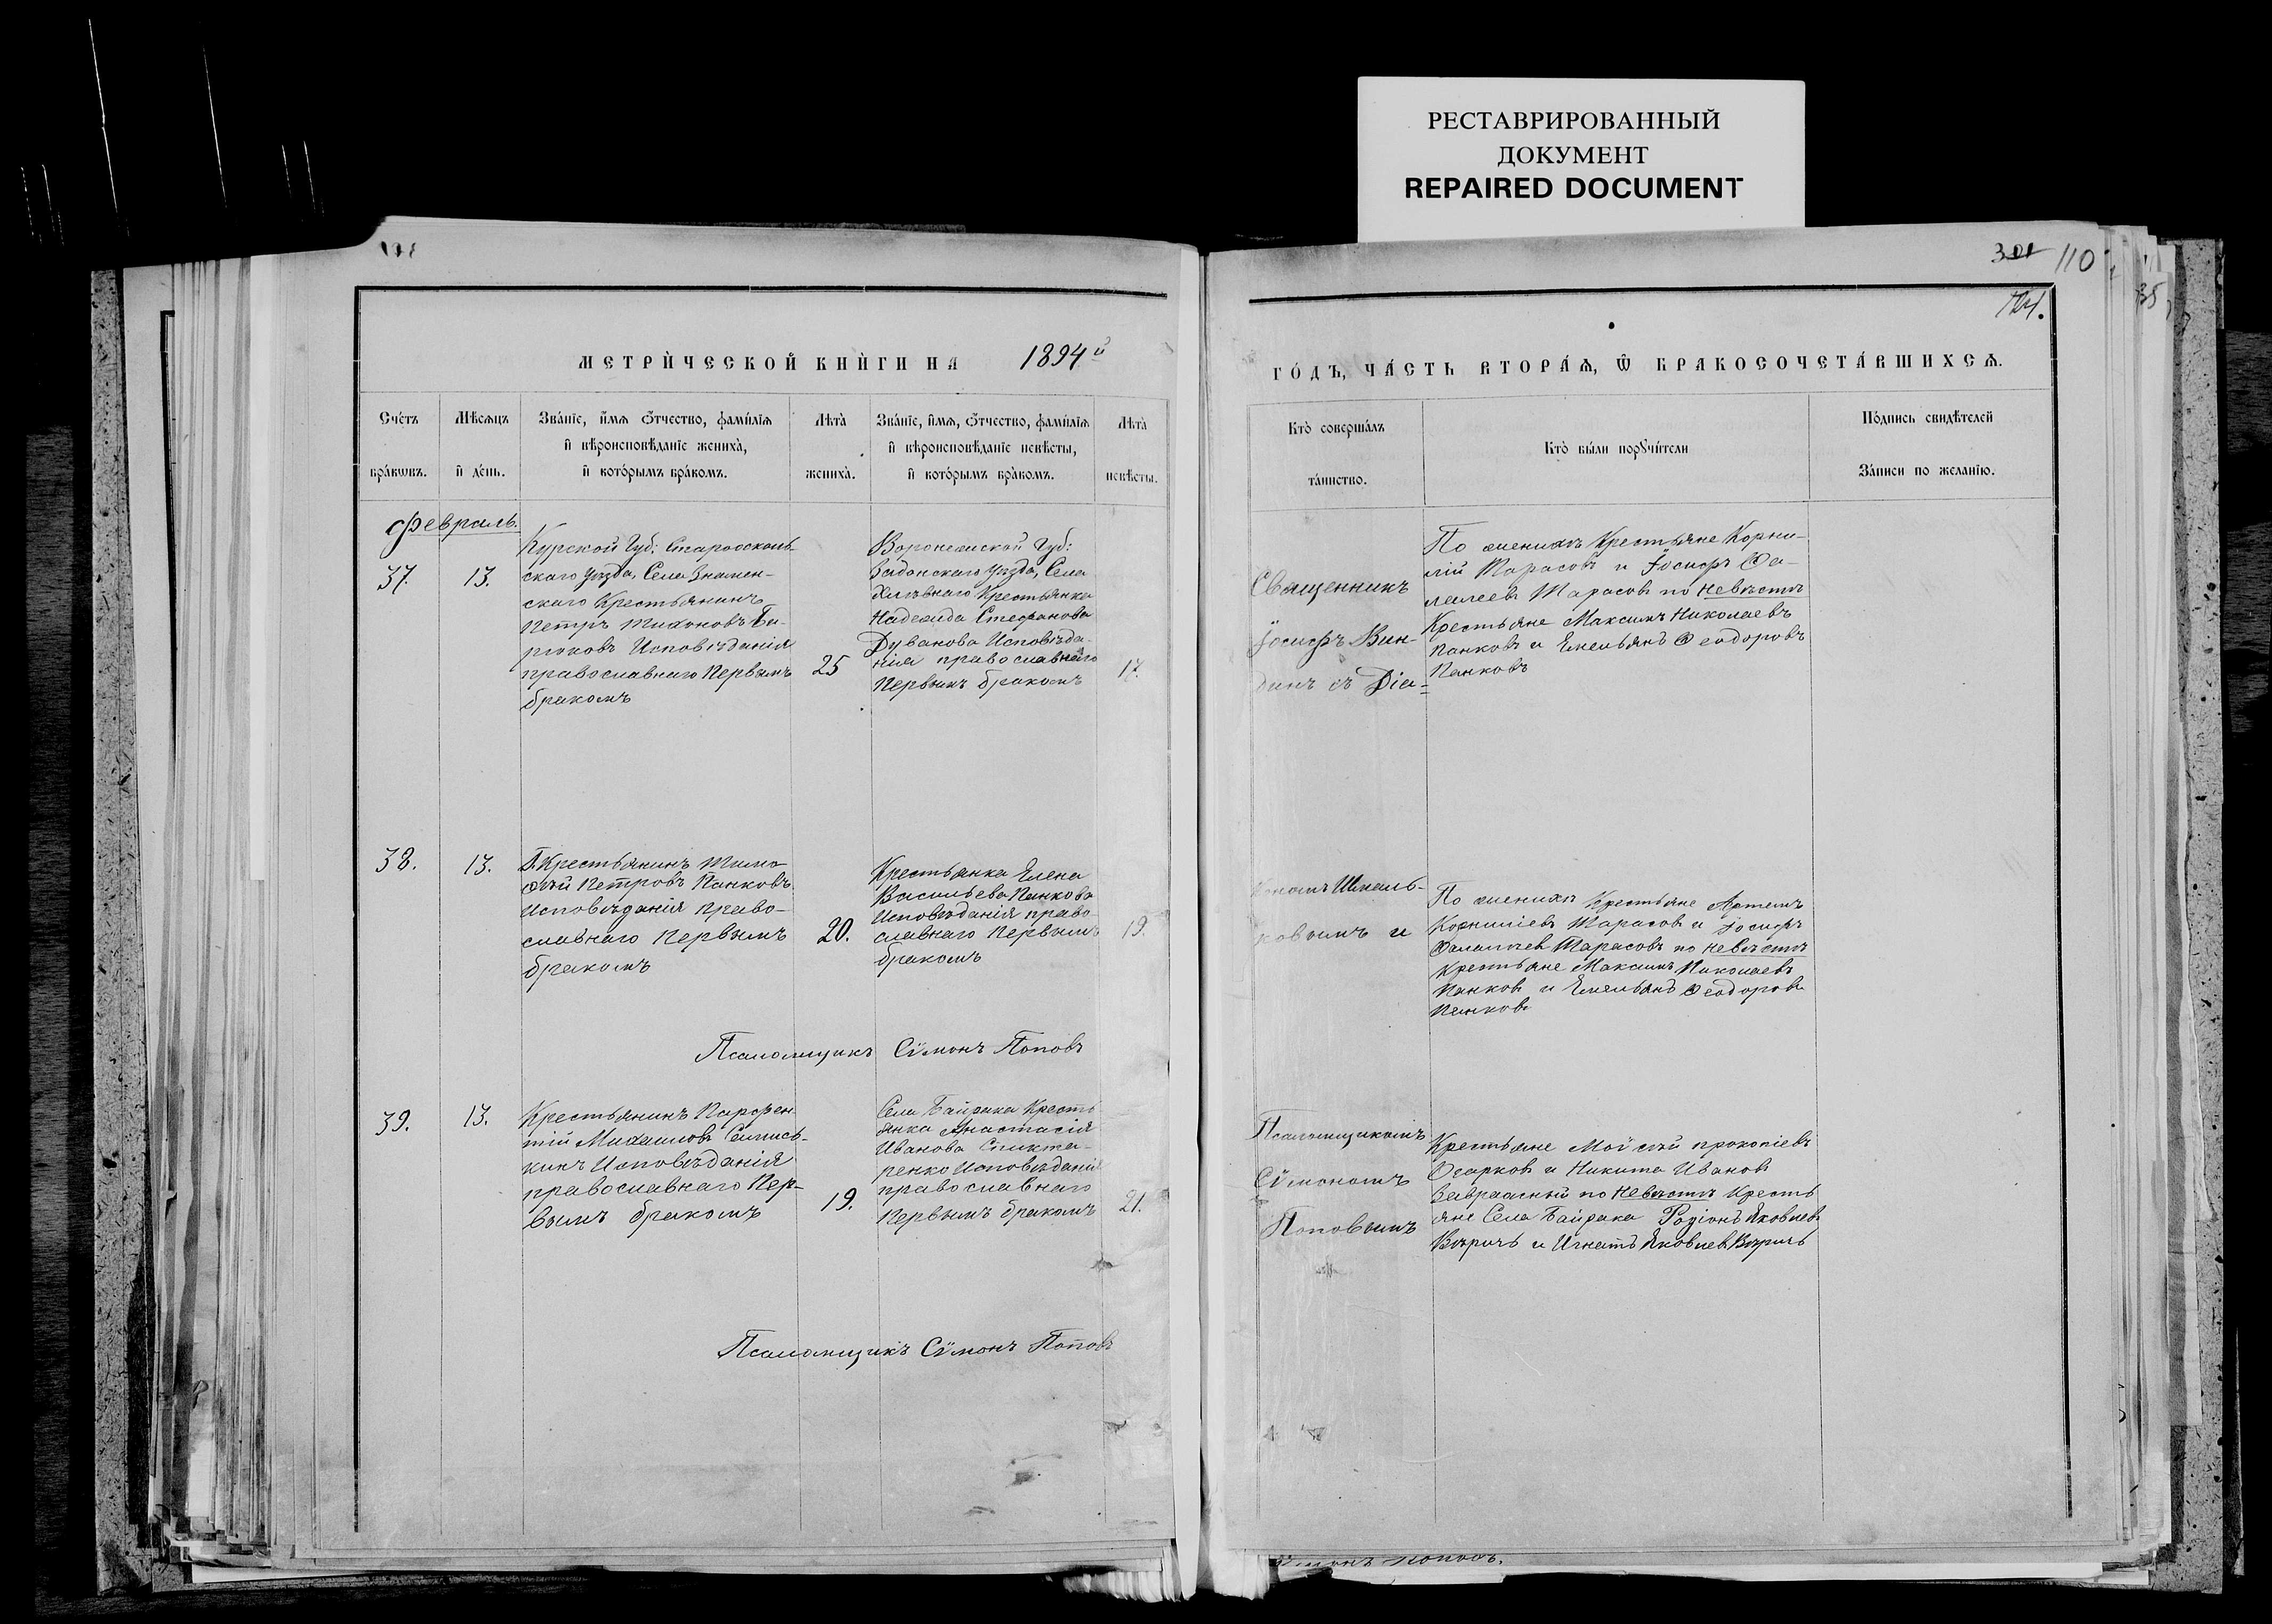 РЕСТАВРИРОВАННЫЙ
ДОКУМЕНТ
REPAIRED DOCUMENT
301 110
МЕТРИ́ЧЕСКОЙ КНИ́ГИ НА 1894й
Сче́тъ
бра́кѡвъ.
Мѣсѧцъ
и҆ де́нь.
Зва́нїе, и҆́мѧ ѻ҆́тчество, фами́лїѧ
и҆ вѣроисповѣ́данїе жениха̀,
и҆ кото́рымъ бра́комъ.
Лѣта̀
жениха̀.
Зва́нїе, и҆́мѧ, ѻ҆́тчество, фами́лїѧ
и҆ вѣроисповѣ́данїе невѣ́сты,
и҆ кото́рымъ бра́комъ.
Лѣта̀
невѣ́сты.
Февраль.
37. 13.
Курской Губ: Старооскль-
скаго уѣзда, Села Знамен-
скаго Крестьянинъ
Петръ Тихоновъ Би-
рюковъ Исповѣданія
православнаго Первымъ
бракомъ
25
Воронежской Губ:
Задонскаго уѣзда, Села
Крестьянка
Надежда Стефанова
Дуванова Исповѣда-
нія православнаго
Первымъ бракомъ
17.
38. 13.
Крестьянинъ Тимо-
ѳей Петровъ Панковъ
Исповѣданія право-
славнаго Первымъ
бракомъ
20.
Крестьянка Елена
Васильева Панкова
Исповѣданія право-
славнаго Первымъ
бракомъ
19.
Псаломщикъ Сѵмонъ Поповъ
39. 13.
Крестьянинъ Парфен-
тій Михаиловъ
Исповѣданія
православнаго Пер-
вымъ бракомъ
19.
Села Байрака Кресть
янка Анастасія
Иванова Сликта-
ренко Исповѣданія
православнаго
Первымъ бракомъ
21.
Псаломщикъ Сѵмонъ Поповъ
ГО́ДЪ, ЧА́СТЬ ВТОРА́Ѧ, Ѡ҆ БРАКОСОЧЕТА́ВШИХСѦ.
Кто̀ соверша́лъ
та́инство.
Кто̀ бы́ли порꙋчи́тели
По́дпись свидѣ́телей
За́писи по жела́нїю.
Священникъ
Іосифъ Вин-
динъ съ Діа-
кономъ Шмаль-
ковымъ и
Псаломщикомъ
Сѵмономъ
Поповымъ
По женихѣ Крестьяне Корни-
лій Тарасовъ и Іосифъ Фа-
лалеевъ Тарасовъ по Невѣстѣ
Крестьяне Максимъ Николаевъ
Панковъ и Емельянъ Ѳеодоровъ
Панковъ
По женихѣ Крестьяне Артемъ
Корниліевъ Тарасовъ и Іосифъ
Фалалеевъ Тарасовъ по невѣстѣ
Крестьяне Максимъ Николаевъ
Панковъ и Емельянъ Ѳеодоровъ
Панковъ
Крестьяне Моѵсей прокопіевъ
Огарковъ и Никита Ивановъ
Завражный по Невѣстѣ Кресть
яне Села Байрака Родіонъ Яковлевъ
и Игнатъ Яковлевъ